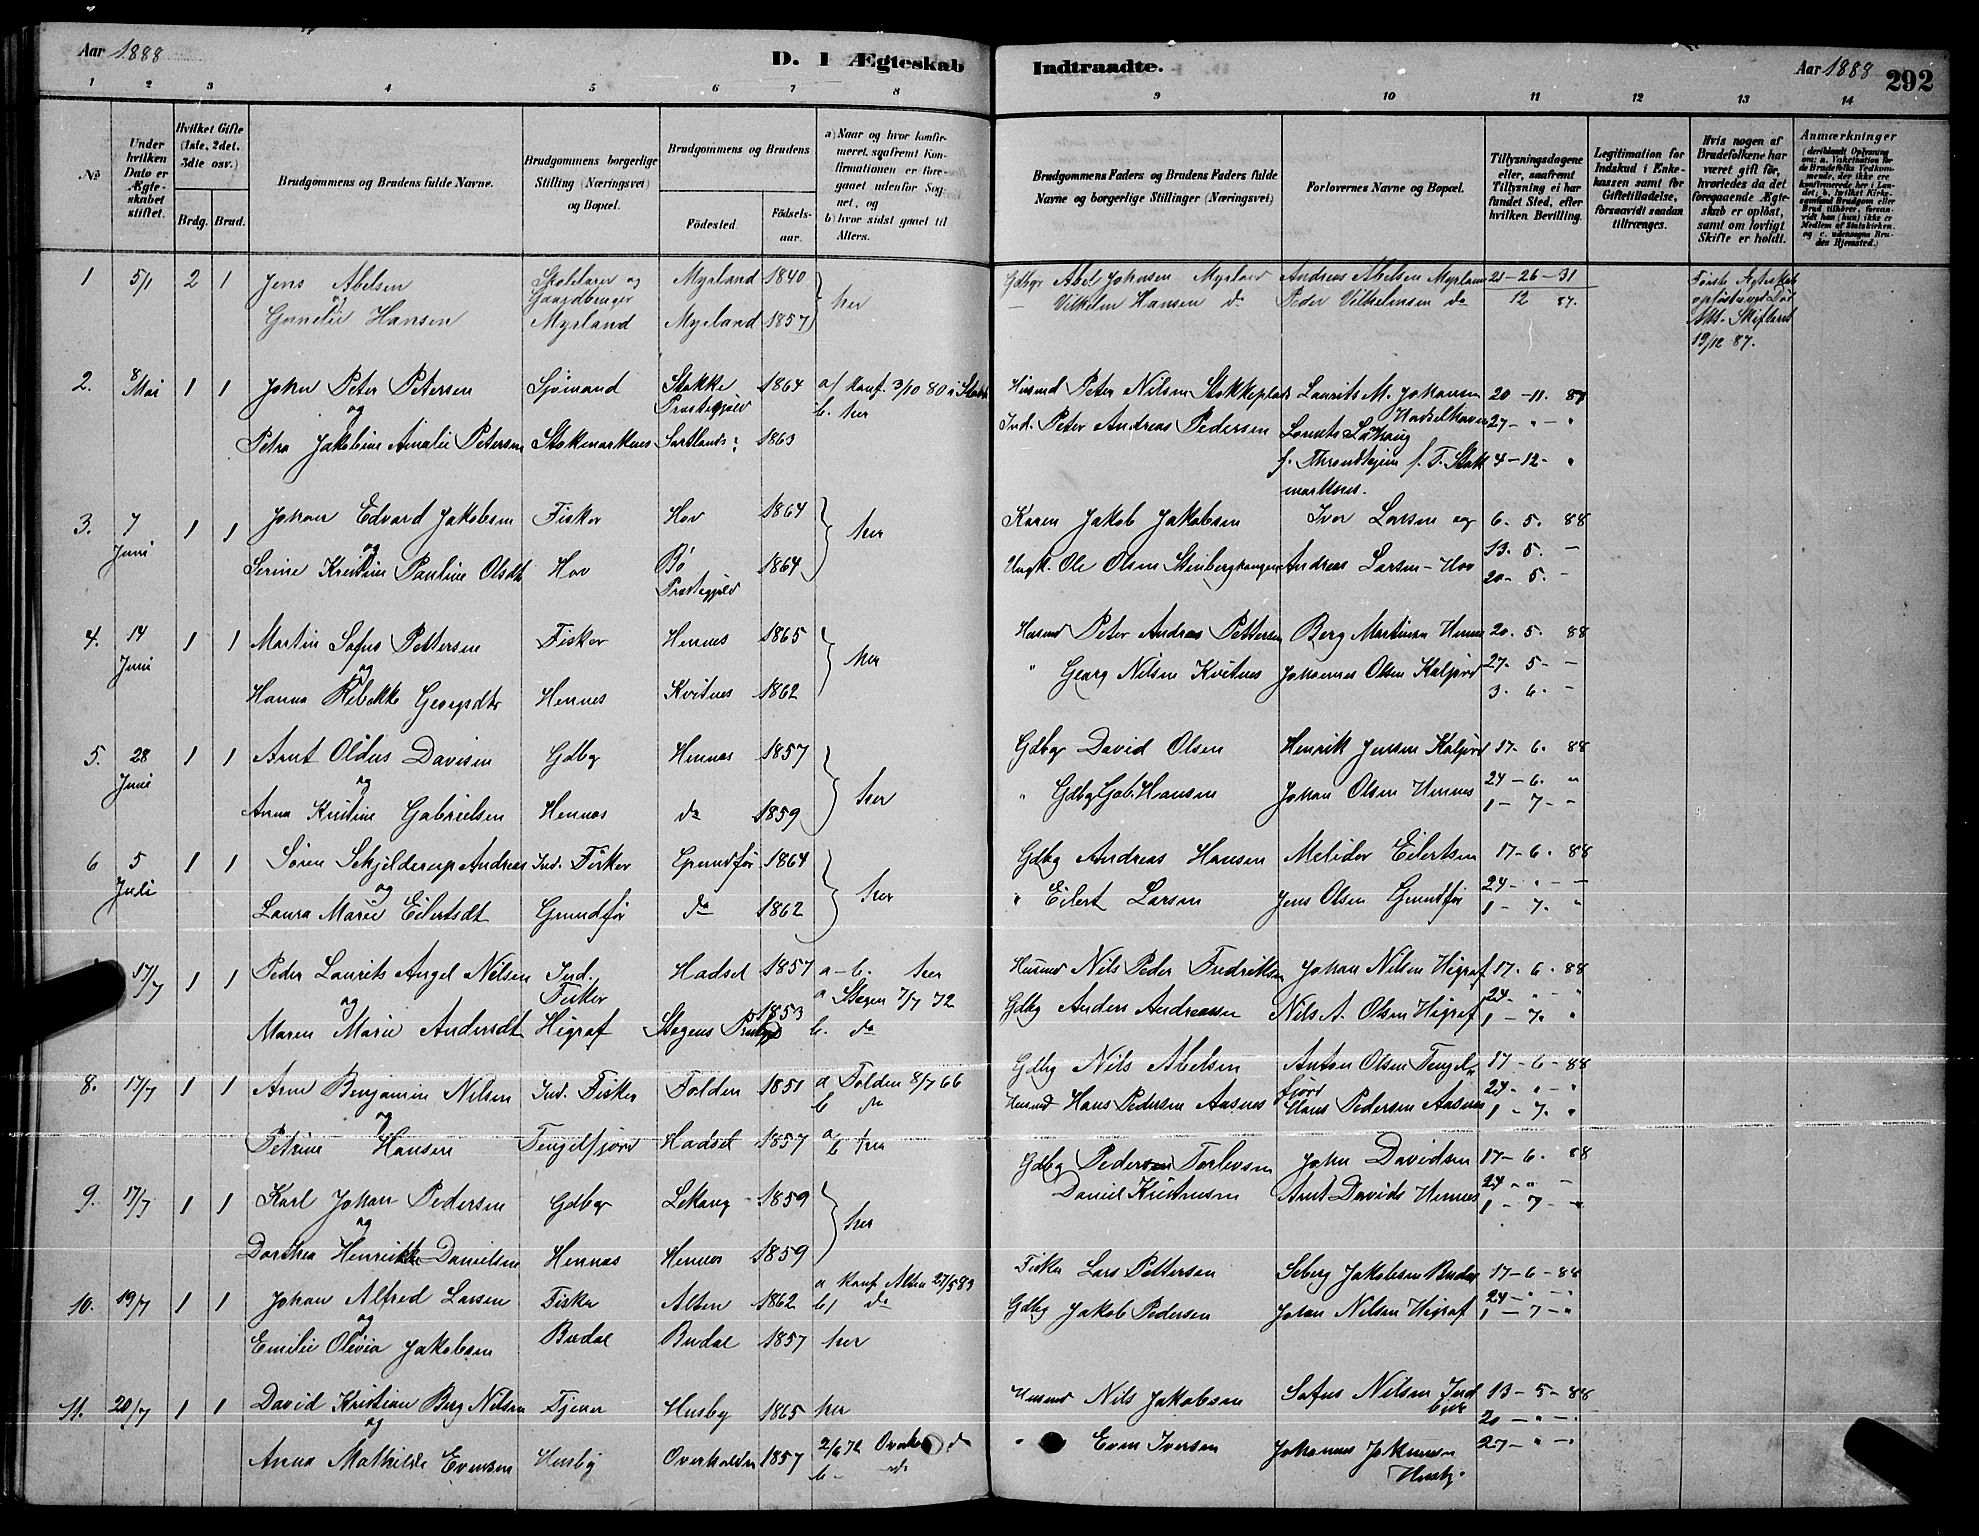 Aar 1888
D. 1 Ægteskab
Indtraadte.
Aar 1888
292
1 2 3 4 5 6 7 8
9 10 11 12 13 14
No
Under hvilken Dato er Ægteskabet stiftet.
Hvilket Gifte (1ste, 2det, 3die osv.)
Brdg. Brud.
Brudgommens og Brudens fulde Navne.
Brudgommens borgerlige Stilling (Næringsvei) og Bopæl.
Brudgommens og Brudens
Fødested.
Fødselsaar.
a) Naar og hvor konfirmeret, saafremt Konfirmationen er foregaaet udenfor Sognet, og
b) hvor sidst gaaet til Alters.
Brudgommens Faders og Brudens Faders fulde Navne og borgerlige Stillinger (Næringsvei)
Forlovernes Navne og Bopæl.
Tillysningsdagene eller, saafremt Tillysning ei har fundet Sted, efter hvilken Bevilling.
Legitimation for Indskud i Enkekassen samt for Giftetilladelse, forsaavidt saadan tiltrænges.
Hvis nogen af Brudefolkene har været gift før, hvorledes da det foregaaende Ægteskab er opløst, samt om lovligt Skifte er holdt.
Anmærkninger
1 5/1 2 1 Jens Abelsen Skolelærer og Myrland 1840
og Gaardbruger her
Gunelie Hansen Myrland Myrland 1857
Gdbgr Abel Johnsen Myrland Andreas Abelsen Myrland 21-26-31
— Vilhelm Hansen do Peder Vilhelmsen do 12 87.
Første Ægteskab
opløst ved Død
Att. Skifteret
19/12 87.
2. 8 Mai 1 1 John Peter Petersen Sjømand Stokke 1864 a/ konf. 3/10 80 i Stokke
og Præstegjeld b. her
Petra Jakobine Amalie Petersen Stokmarknes Sortlands 1863
Husmd Peter Nilsen Stokkeplads Laurits M. Johansen 20-11. 87
Hadselhavn
Ind. Peter Andreas Pedersen 27- " - "
f. Throndhjem f. T. Stok 4-12- "
marknes.
3. 7 Juni 1 1 Johan Edvard Jakobsen Fisker Hov 1864
og her
Serine Kristine Pauline Olsdt Hov Bø 1864
Præstegjeld
Karen Jakob Jakobsen Iver Larsen og 6. 5. 88
13. 5. -
Ungk. Ole Olsen Steinberghaugen Andreas Larsen - Hov
20- 5. -
4. 14 Juni 1 1 Martin Sofus Pettersen Fisker Hennes 1865
og her
Hanna Rebekka Georgsdtr Hennes Kvitnes 1862
Husmd Peter Andreas Pettersen Berg Martinsen Hennes 20. 5. 88
" Georg Nilsen Kvitnes Johannes Olsen Kaljord 27. 5 - -
3. 6. -
5. 28 Juni 1 1 Arnt Oldus Davisen Gdbg Hennes 1857
og her
Anna Kristine Gabrielsen Hennes do 1859
Gdbgr David Olsen Henrik Jensen Kaljord 17- 6. 88
" Gdbg Gab. Hansen Johan Olsen Hennes 24-6. "
1 - 7 - "
6 5 Juli 1 1 Søren Schjelderup Andreas Ind. Fisker Grundfør 1864
og her
Laura Marie Eilertsdt Grundfør do 1862
Gdbg Andreas Hansen Melidor Eilertsen 17-6. 88
" Eilert Larsen Jens Olsen Grundfør 24- " -
1 - 7. "
17/7 1 1 Peder Laurits Angel Nilsen Ind. Hadsel 1857 a-b. her
og Fisker a Stegen 7/7 72
Maren Marie Andersdt Higraf Stegens Præstgd 1853 b. do
Husmd Nils Peder Fredriksen Johan Nilsen Higraf 17. 6. 88
24- " - "
Gdbg Anders Andreassen Nils A. Olsen Higraf 1 - 7. "
8. 17/7 1 1 Arne Benjamin Nilsen Ind. Fisker Folden 1851 a Folden 8/7 66
og b do
Petrine Hansen Tengelfjord Hadsel 1857 a/b her
Gdbg Nils Abelsen Anton Olsen Tengel 17-6-88
fjord 24- " - "
Husmd Hans Pedersen Aasnes Hans Pedersen Aasnes 1 - 7. "
9. 17/7 1 1 Karl Johan Pedersen Gdbgr Lekang 1859
og her
Dorthea Henrikke Danielsen Hennes Hennes 1859
Gdbg Pedersen Torlevsen John Davidsen 17-6. 88
24- " -
Daniel Kristensen Arnt Davids Hennes 1 - 7 - "
10. 19/7 1 1 Johan Alfred Larsen Fisker Alten 1862 a konf. Alten 27/5 83
og b/ do
Emilie Olivia Jakobsen Budal Budal 1857 her
Fisker Lars Pettersen Seberg Jakobsen Budal 17-6-88
24- " -
Gdbg Jakob Pedersen Johan Nilsen Higraf 1 - 7 - "
11. 20/7 1 1 David Kristian Berg Nilsen Tjener Husby 1865 her
og
Anna Mathilde Evensen Husby Overhalden 1857 2/6 72
b- do
Husmd Nils Jakobsen Sofus Nilsen 13-5-88
20 - " - "
" Even Iversen Johannes Johnsen 27- " - "
Husby.